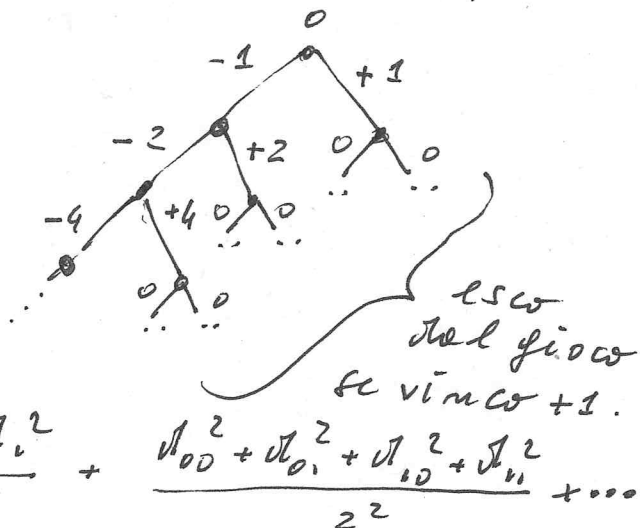 0
-1 +1
-2 +2 0 0
-4 +4 0 0 .. ..
0 0 .. ..
... .. ..
esco
dal gioco
se vinco +1.
1² + d₀₀² + d₀₁² + d₁₀² + d₁₁² / 2² + ...